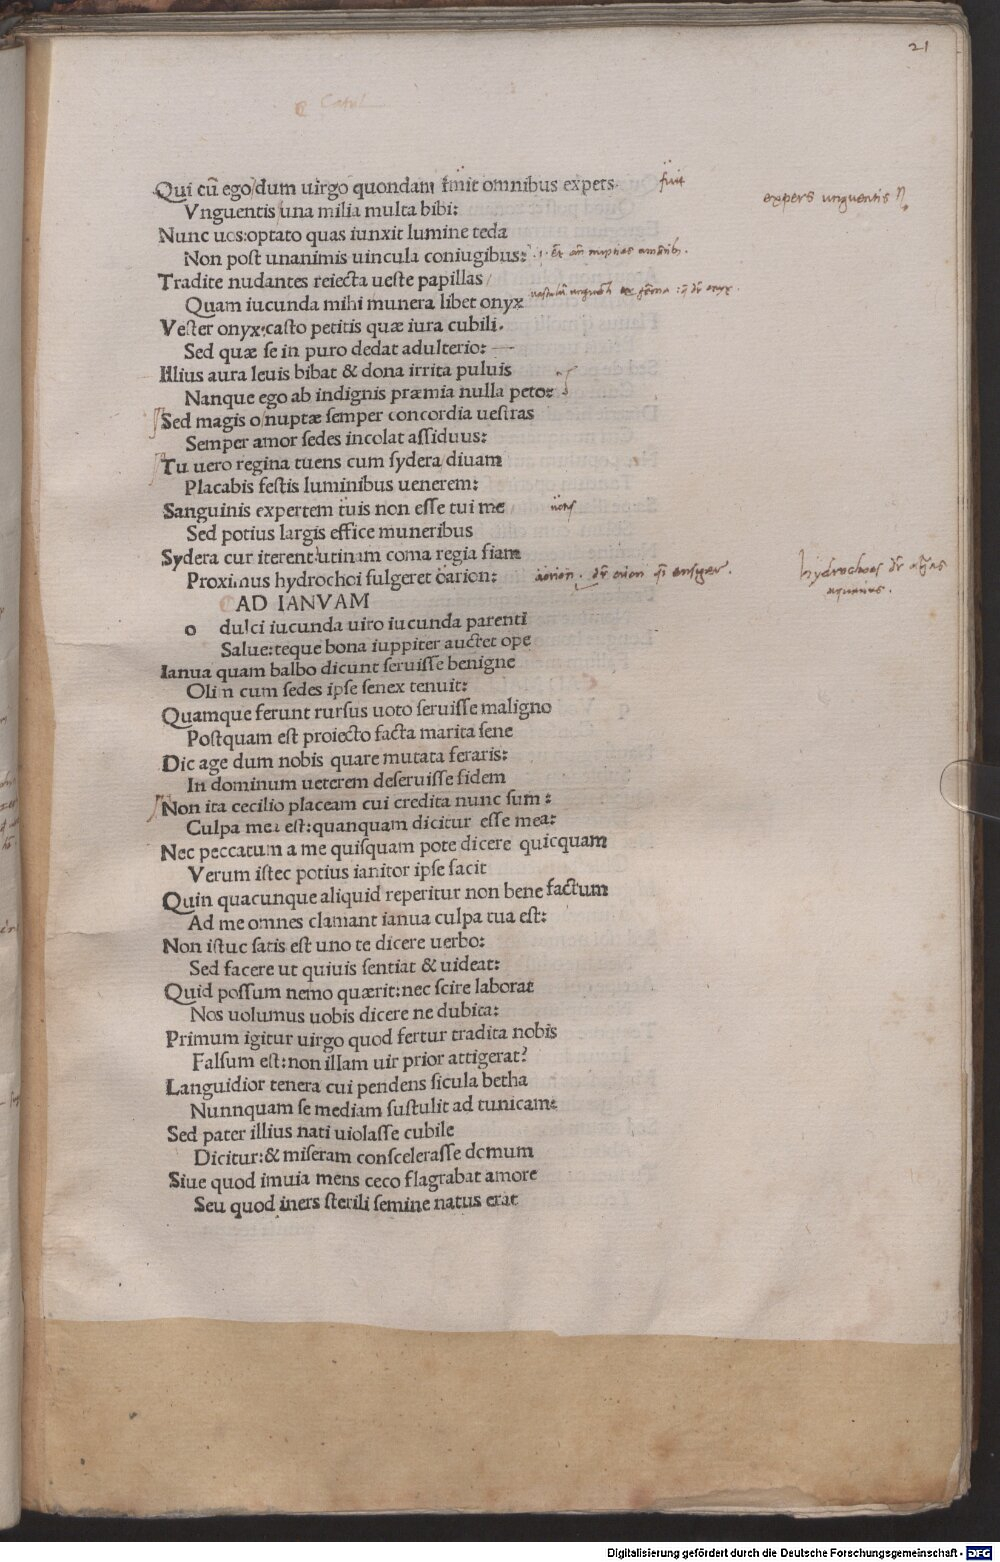 21
Catul
Qui cū ego dum uirgo quondam omnibus expers fuit expers unguentis
Vnguentis una milia multa bibi:
Nunc uos:optato quas iunxit lumine teda
Non post unanimis uincula coniugibus:
Tradite nudantes reiecta ueste papillas
Quam iucunda mihi munera libet onyx
Vester onyx:casto petitis quæ iura cubili.
Sed quæ se in puro dedat adulterio:
Illius aura leuis bibat & dona irrita puluis
Nanque ego ab indignis præmia nulla peto:
Sed magis o nuptæ semper concordia uestras
Semper amor sedes incolat assiduus:
Tu uero regina tuens cum sydera diuam
Placabis festis luminibus uenerem:
Sanguinis expertem tuis non esse tui me
Sed potius largis effice muneribus
Sydera cur iterent utinam coma regia fiam
Proximus hydrochoi fulgeret oarion: hydrochoos
aquarius.
AD IANVAM
o dulci iucunda uiro iucunda parenti
Salue:teque bona iuppiter auctet ope
Ianua quam balbo dicunt seruisse benigne
Olim cum sedes ipse senex tenuit:
Quamque ferunt rursus uoto seruisse maligno
Postquam est proiecto facta marita sene
Dic age dum nobis quare mutata feraris:
In dominum ueterem deseruisse fidem
Non ita cecilio placeam cui credita nunc sum:
Culpa mea est:quanquam dicitur esse mea:
Nec peccatum a me quisquam pote dicere quicquam
Verum istec potius ianitor ipse facit
Quin quacunque aliquid reperitur non bene factum
Ad me omnes clamant ianua culpa tua est:
Non istuc satis est uno te dicere uerbo:
Sed facere ut quiuis sentiat & uideat:
Quid possum nemo quærit:nec scire laborat
Nos uolumus uobis dicere ne dubita:
Primum igitur uirgo quod fertur tradita nobis
Falsum est:non illam uir prior attigerat?
Languidior tenera cui pendens sicula betha
Nunnquam se mediam sustulit ad tunicam:
Sed pater illius nati uiolasse cubile
Dicitur:& miseram conscelerasse domum
Siue quod imuia mens ceco flagrabat amore
Seu quod iners sterili semine natus erat
Digitalisierung gefördert durch die Deutsche Forschungsgemeinschaft - DFG